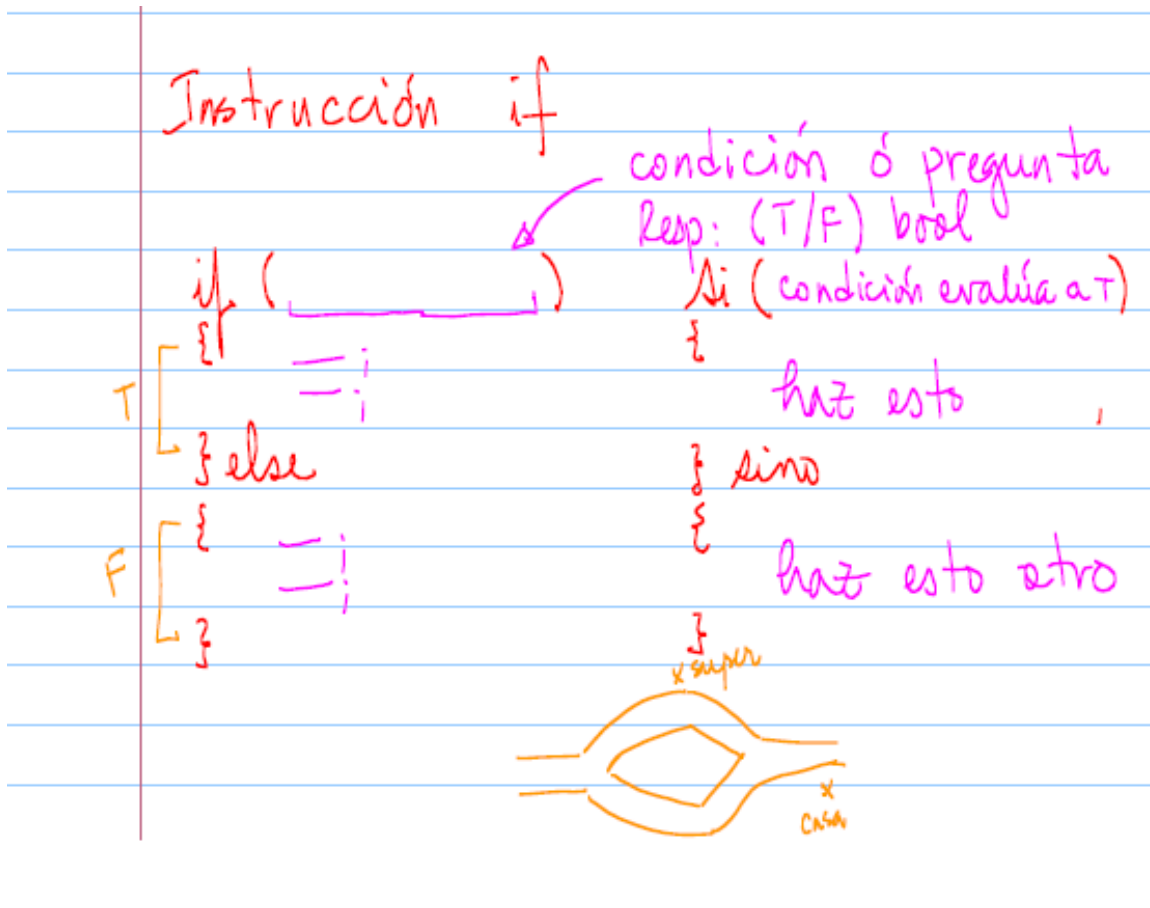 Instrucción if
condición ó pregunta
Resp: (T/F) bool
if (          )
{
T
} else
{
F
}
Si (condición evalúa a T)
{
haz esto
} sino
{
haz esto otro
}
x super
x
casa